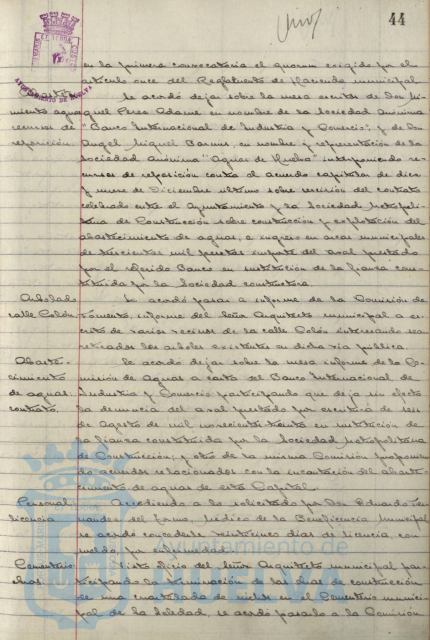 44
en la primera convocatoria el quorum exigido por el
artículo once del Reglamento de Hacienda municipal
Se acordó dejar sobre la mesa escritos de Don Mi-
guel Perez Adame en nombre de la Sociedad Anónima
recursos de
"Banco Internacional de Industria y Comercio"; y de Don
reposición
Angel Miguel en nombre y representación de la
Sociedad Anónima "Aguas de Huelva" interponiendo re-
cursos de reposición contra el acuerdo capitular de diez
y nueve de Diciembre último sobre rescisión del contrato
celebrado entre el Ayuntamiento y la Sociedad Metropoli-
tana de Construcción sobre construcción y explotación del
abastecimiento de aguas, e ingreso en arcas municipales
de trescientas mil pesetas importe del aval prestado
por el referido Banco en sustitución de la fianza cons-
tituida por la Sociedad constructora.
Arbolado
calle Colón.
Se acordó pasar a informe de la Comisión de
Fomento, informe del Señor Arquitecto municipal a es-
crito de varios vecinos de la calle Colón interesando sean
retirados los arboles existentes en dicha vía publica.
Abaste-
cimiento
de aguas:
contrato.
Se acordó dejar sobre la mesa informe de la Co-
misión de Aguas a carta del Banco Internacional de
Industria y Comercio participando que deja sin efecto
la denuncia del aval prestado por escritura de seis
de Agosto de mil novecientos treinta en sustitución de
la fianza constituida por la Sociedad Metropolitana
de Construcción; y otro de la misma Comisión proponien-
do acuerdos relacionados con la incautación del abaste-
cimiento de aguas de esta Capital.
Personal:
licencia
Accediendo a lo solicitado por Don Eduardo Fer-
nandez del Torno, Médico de la Beneficencia Municipal
se acordó concederle veinticinco dias de licencia, con
sueldo, por enfermedad.
Cementerio:
Visto oficio del Señor Arquitecto municipal par-
ticipando la terminación de las obras de construcción
de una cuartelada de nichos en el Cementerio munici-
pal de la Soledad, se acordó pasarlo a la Comisión
Ayuntamiento de
HUELVA
AYUNTAMIENTO DE HUELVA